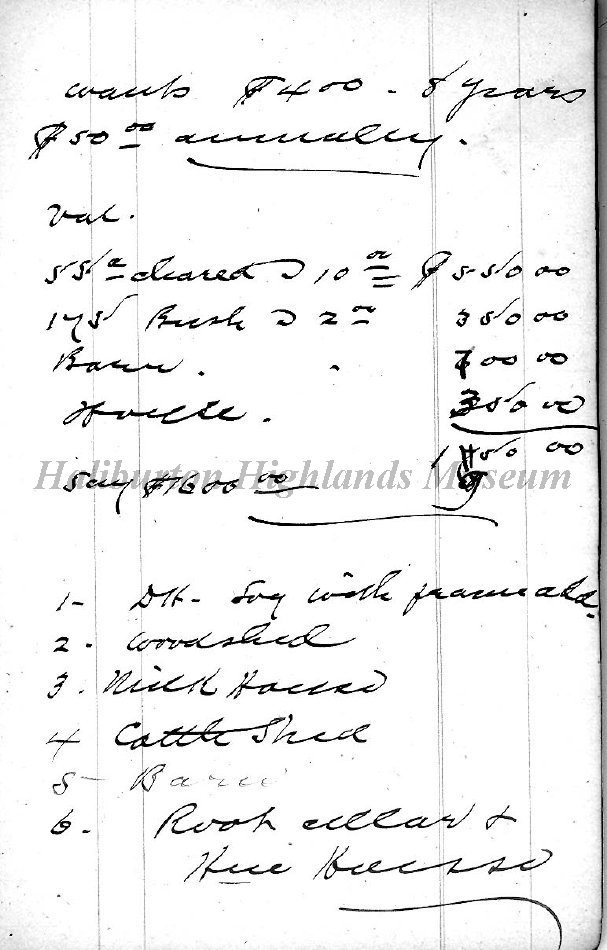 wants $400 - 8 years
$50 00 annually.
Val.
55 a cleared @ 10 00 $ 550 00
175 Bush @ 2 00 350 00
Barn. 00 00
House. 350 00
50 00
Haliburton Highlands Museum
Say $1600 00
1- DH- Log with frame add.
2. woodshed
3. Milk House
4 Cattle Shed
5- Barn
6. Root cellar &
Hen House